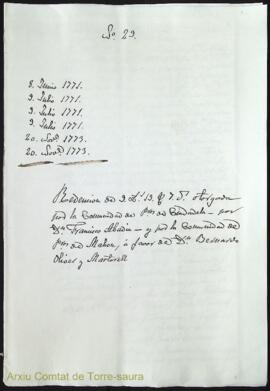 Nº 29.
8. Junio 1771.
9. Julio 1771.
9. Julio 1771.
9. Julio 1771.
20. Nov.e 1773.
20. Nov.e 1773.
Redencion de 9 L. 13. 7 otorgada
por la Comunidad de Pres de Ciudadela - por
Dn Francisco Abadia - y por la Comunidad de
Pres de Mahon, á favor de Dn Bernardo
Oliver y Martorell
Arxiu Comtat de Torre-saura